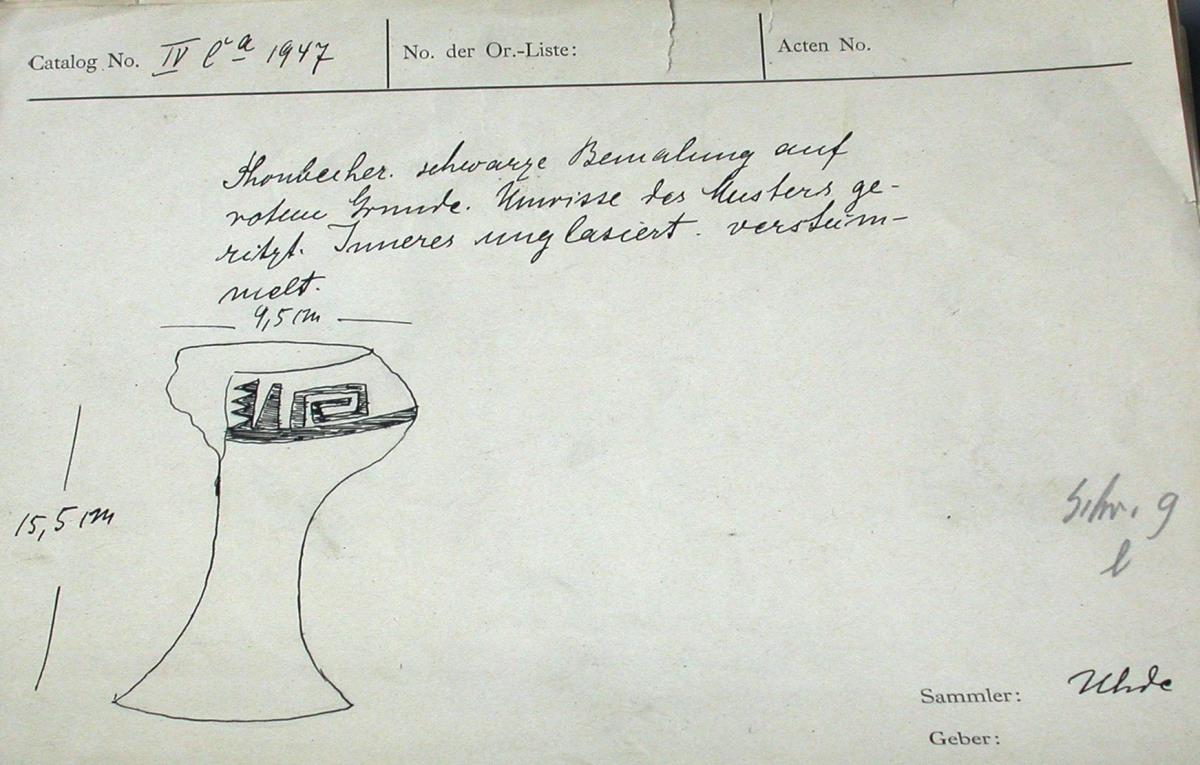 Catalog No. IV Ca 1947
No. der Or.-Liste:
Acten No.
Thonbecher. schwarze Bemalung auf
rotem Grunde. Umrisse des Musters ge-
ritzt. Inneres unglasiert. verstüm-
melt.
9,5 cm
15,5 cm
Schr. 9
l
Sammler: Uhde
Geber: